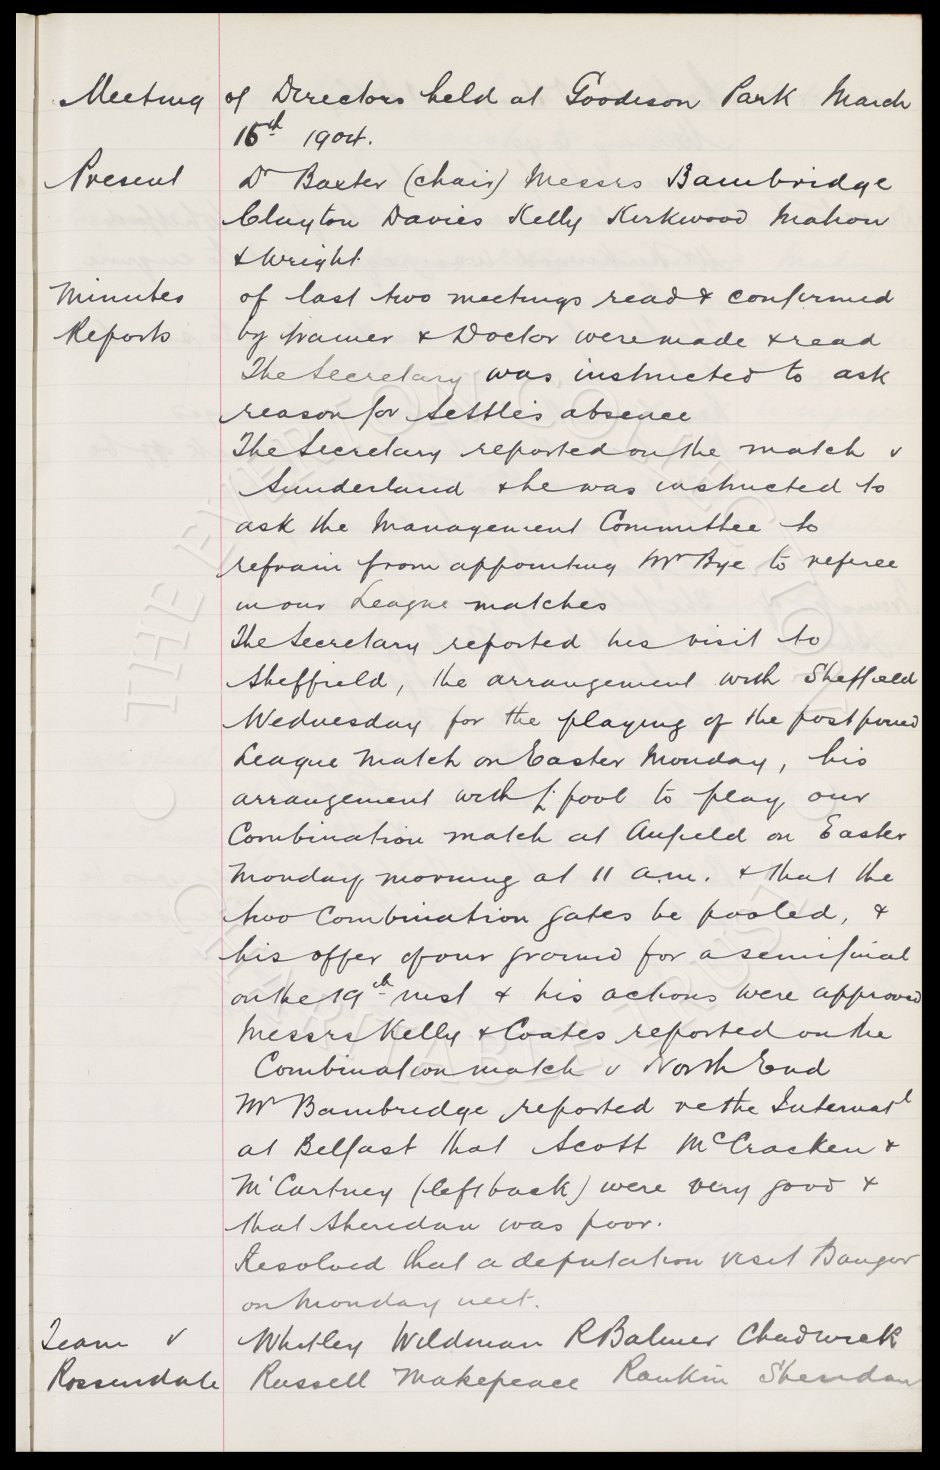 Meeting of Directors held at Goodison Park March
15th 1904.
Present Dr Baxter (chair) Messrs Bambridge
Clayton Davies Kelly Kirkwood Mahon
& Wright
Minutes of last two meetings read & confirmed
Reports by trainer & Doctor were made & read
The Secretary was instructed to ask
reason for Settle's absence
The Secretary reported on the match v
Sunderland & he was instructed to
ask the Management Committee to
refrain from appointing Mr Bye to referee
in our League matches
The Secretary reported his visit to
Sheffield, the arrangement with Sheffield
Wednesday for the playing of the postponed
League match on Easter Monday, his
arrangement with L'pool to play our
Combination match at Anfield on Easter
Monday morning at 11 a.m. & that the
two Combination gates be pooled, &
his offer of our ground for a semifinal
on the 19th inst & his actions were approved
Messrs Kelly & Coates reported on the
Combination match v North End
Mr Bambridge reported re the Internatl
at Belfast that Scott McCracken &
McCartney (left back) were very good &
that Sheridan was poor.
Resolved that a deputation visit Bangor
on Monday next.
Team v Whitley Wildman R Balmer Chadwick
Rossendale Russell Makepeace Rankin Sheridan
THE EVERTON COLLECTION
CHARITABLE TRUST